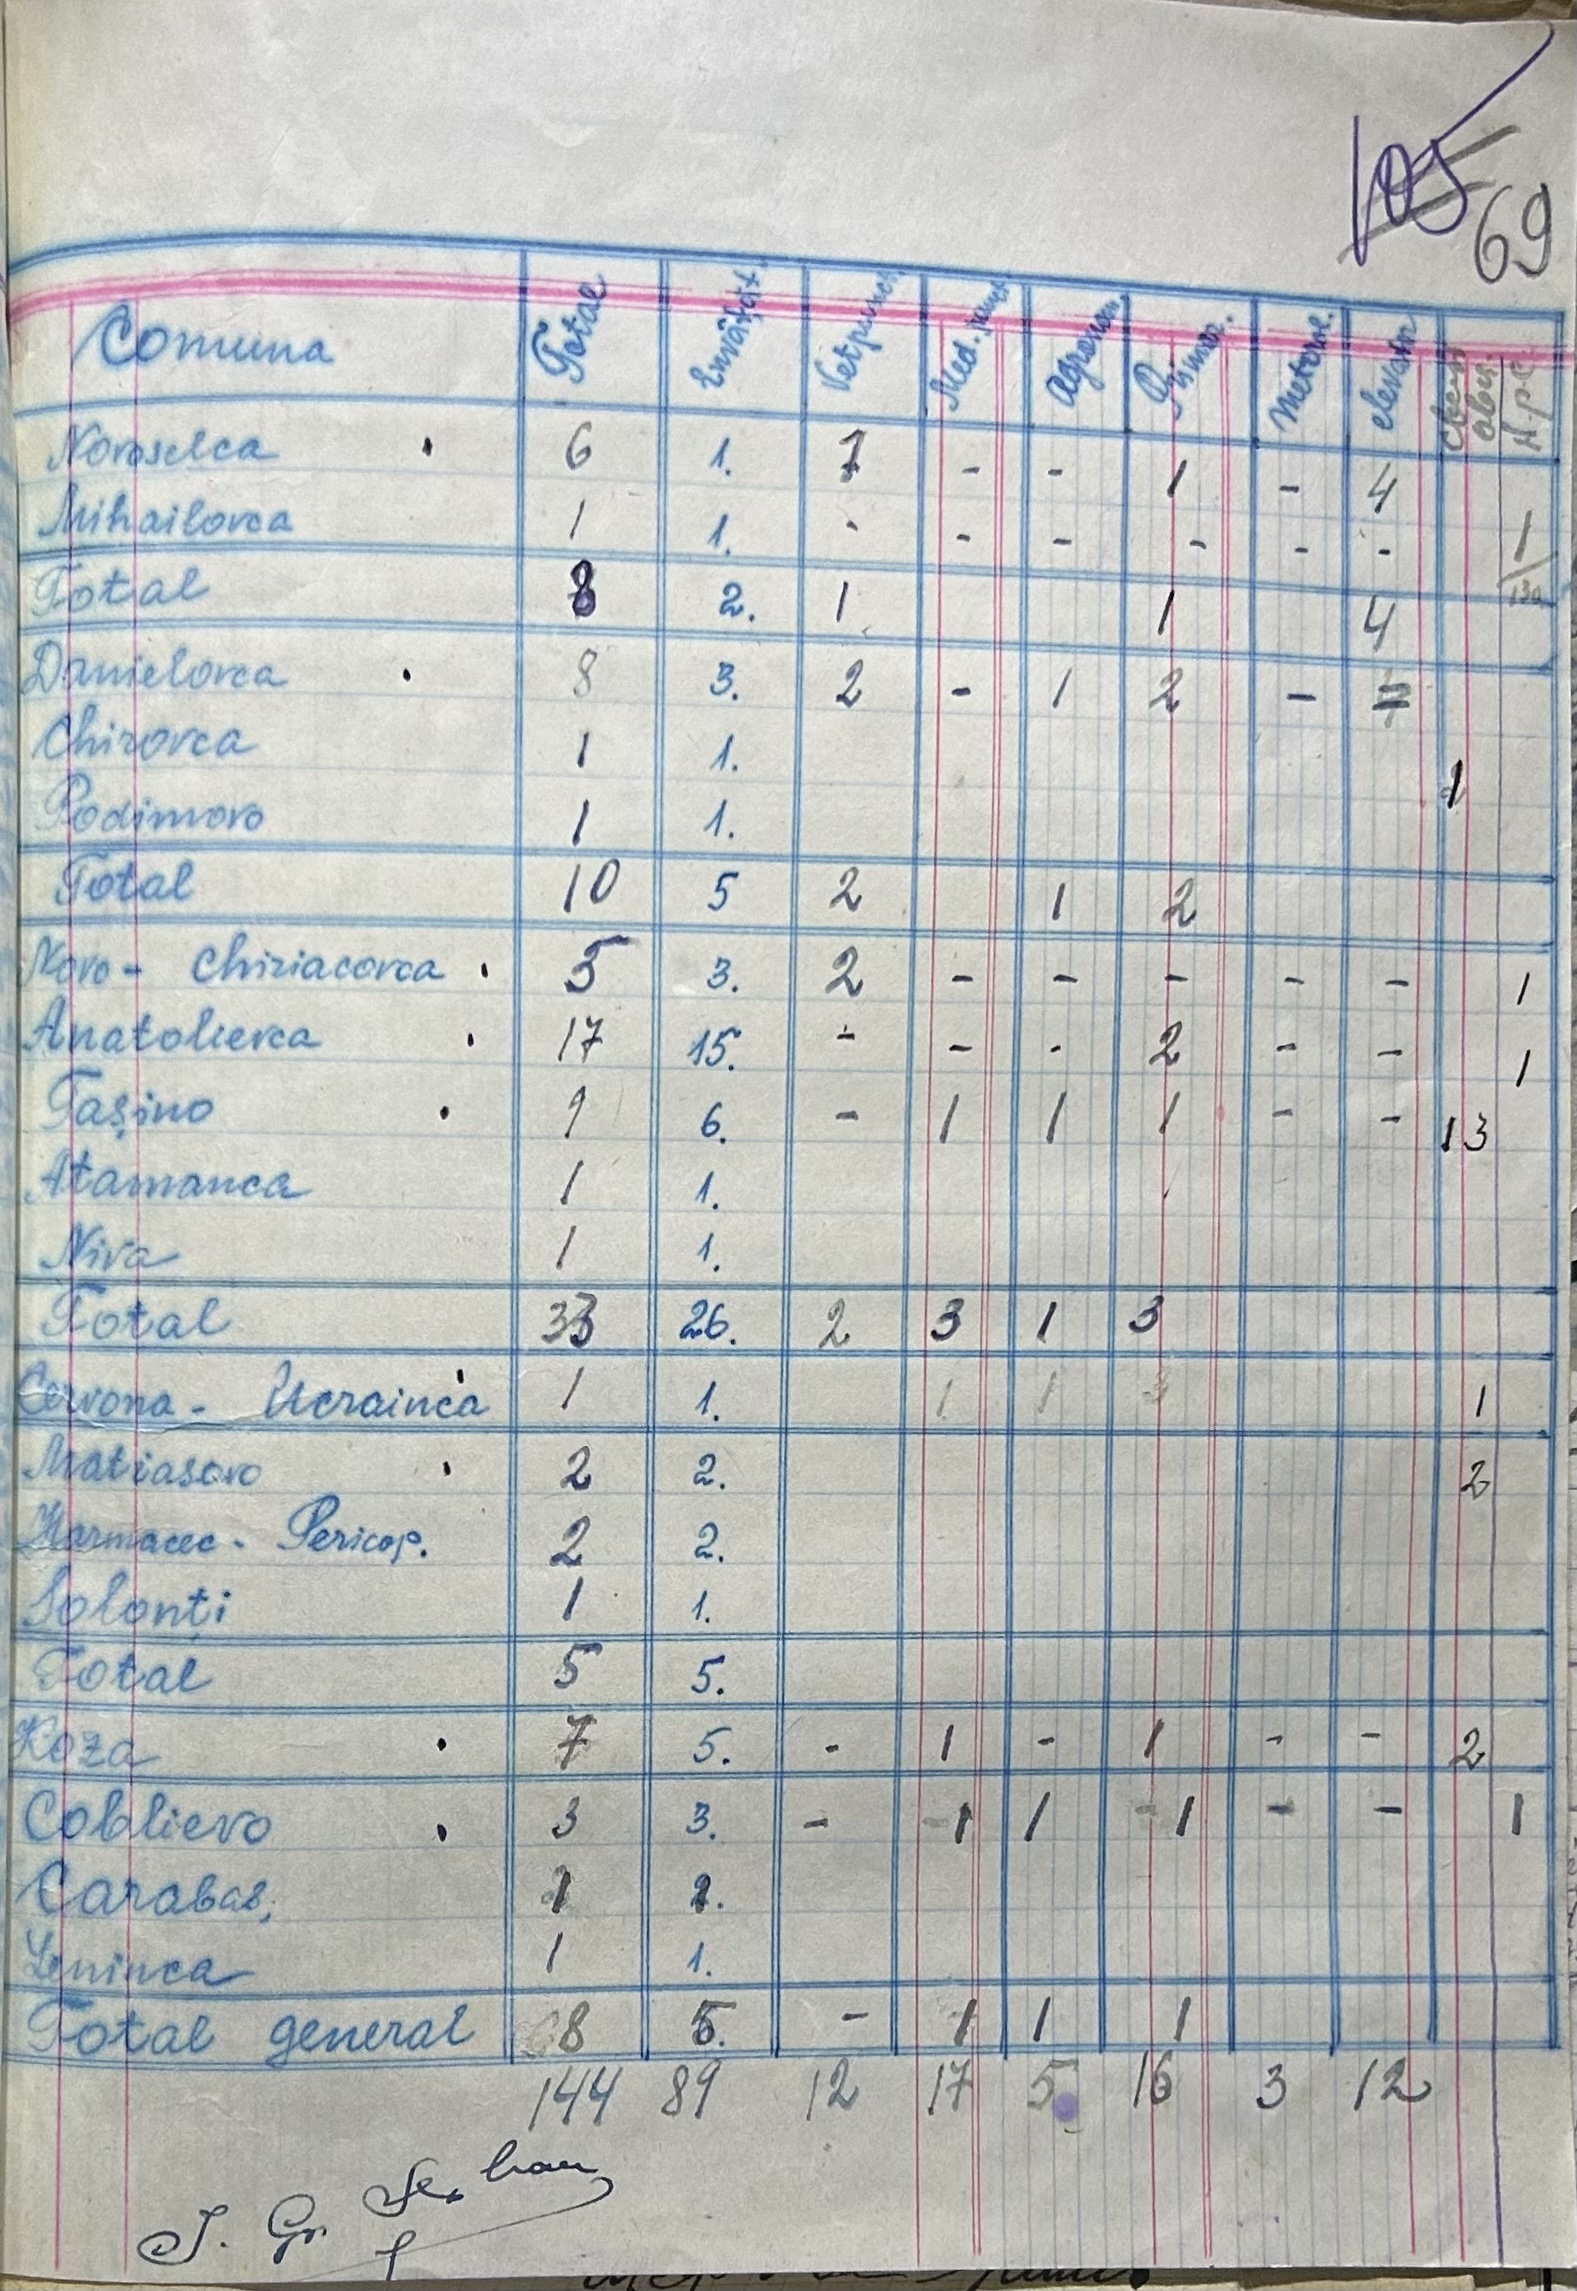 105 69
Comuna Total Învățăt. Vetpunct Med. punct Agronom. Primar. Meteorol. elevator
Novoselca 6 1. 1 - - 1 - 4
Mihailovca 1 1. - - - - - - 1
Total 8 2. 1 1 4
Danielovca 8 3. 2 - 1 2 -
Chirovca 1 1. 1
Podimovo 1 1.
Total 10 5 2 1 2
Novo - Chiriacovca 5 3. 2 - - - - - 1
Anatolievca 17 15. - - - 2 - - 1
Tașino 9 6. - 1 1 1 - - 13
Atamanca 1 1.
Niva 1 1.
Total 33 26. 2 3 1 3
Cervona - Ucrainca 1 1. 1 1 1
Matiasovo 2 2. 2
Harmacec - Pericop. 2 2.
Solonți 1 1.
Total 5 5.
Koza 7 5. - 1 - 1 - - 2
Coblievo 3 3. - 1 1 1 - - 1
Carabaș, 1 1.
Leninca 1 1.
Total general 8 5. - 1 1 1
144 89 12 17 5 16 3 12
I. Gr.